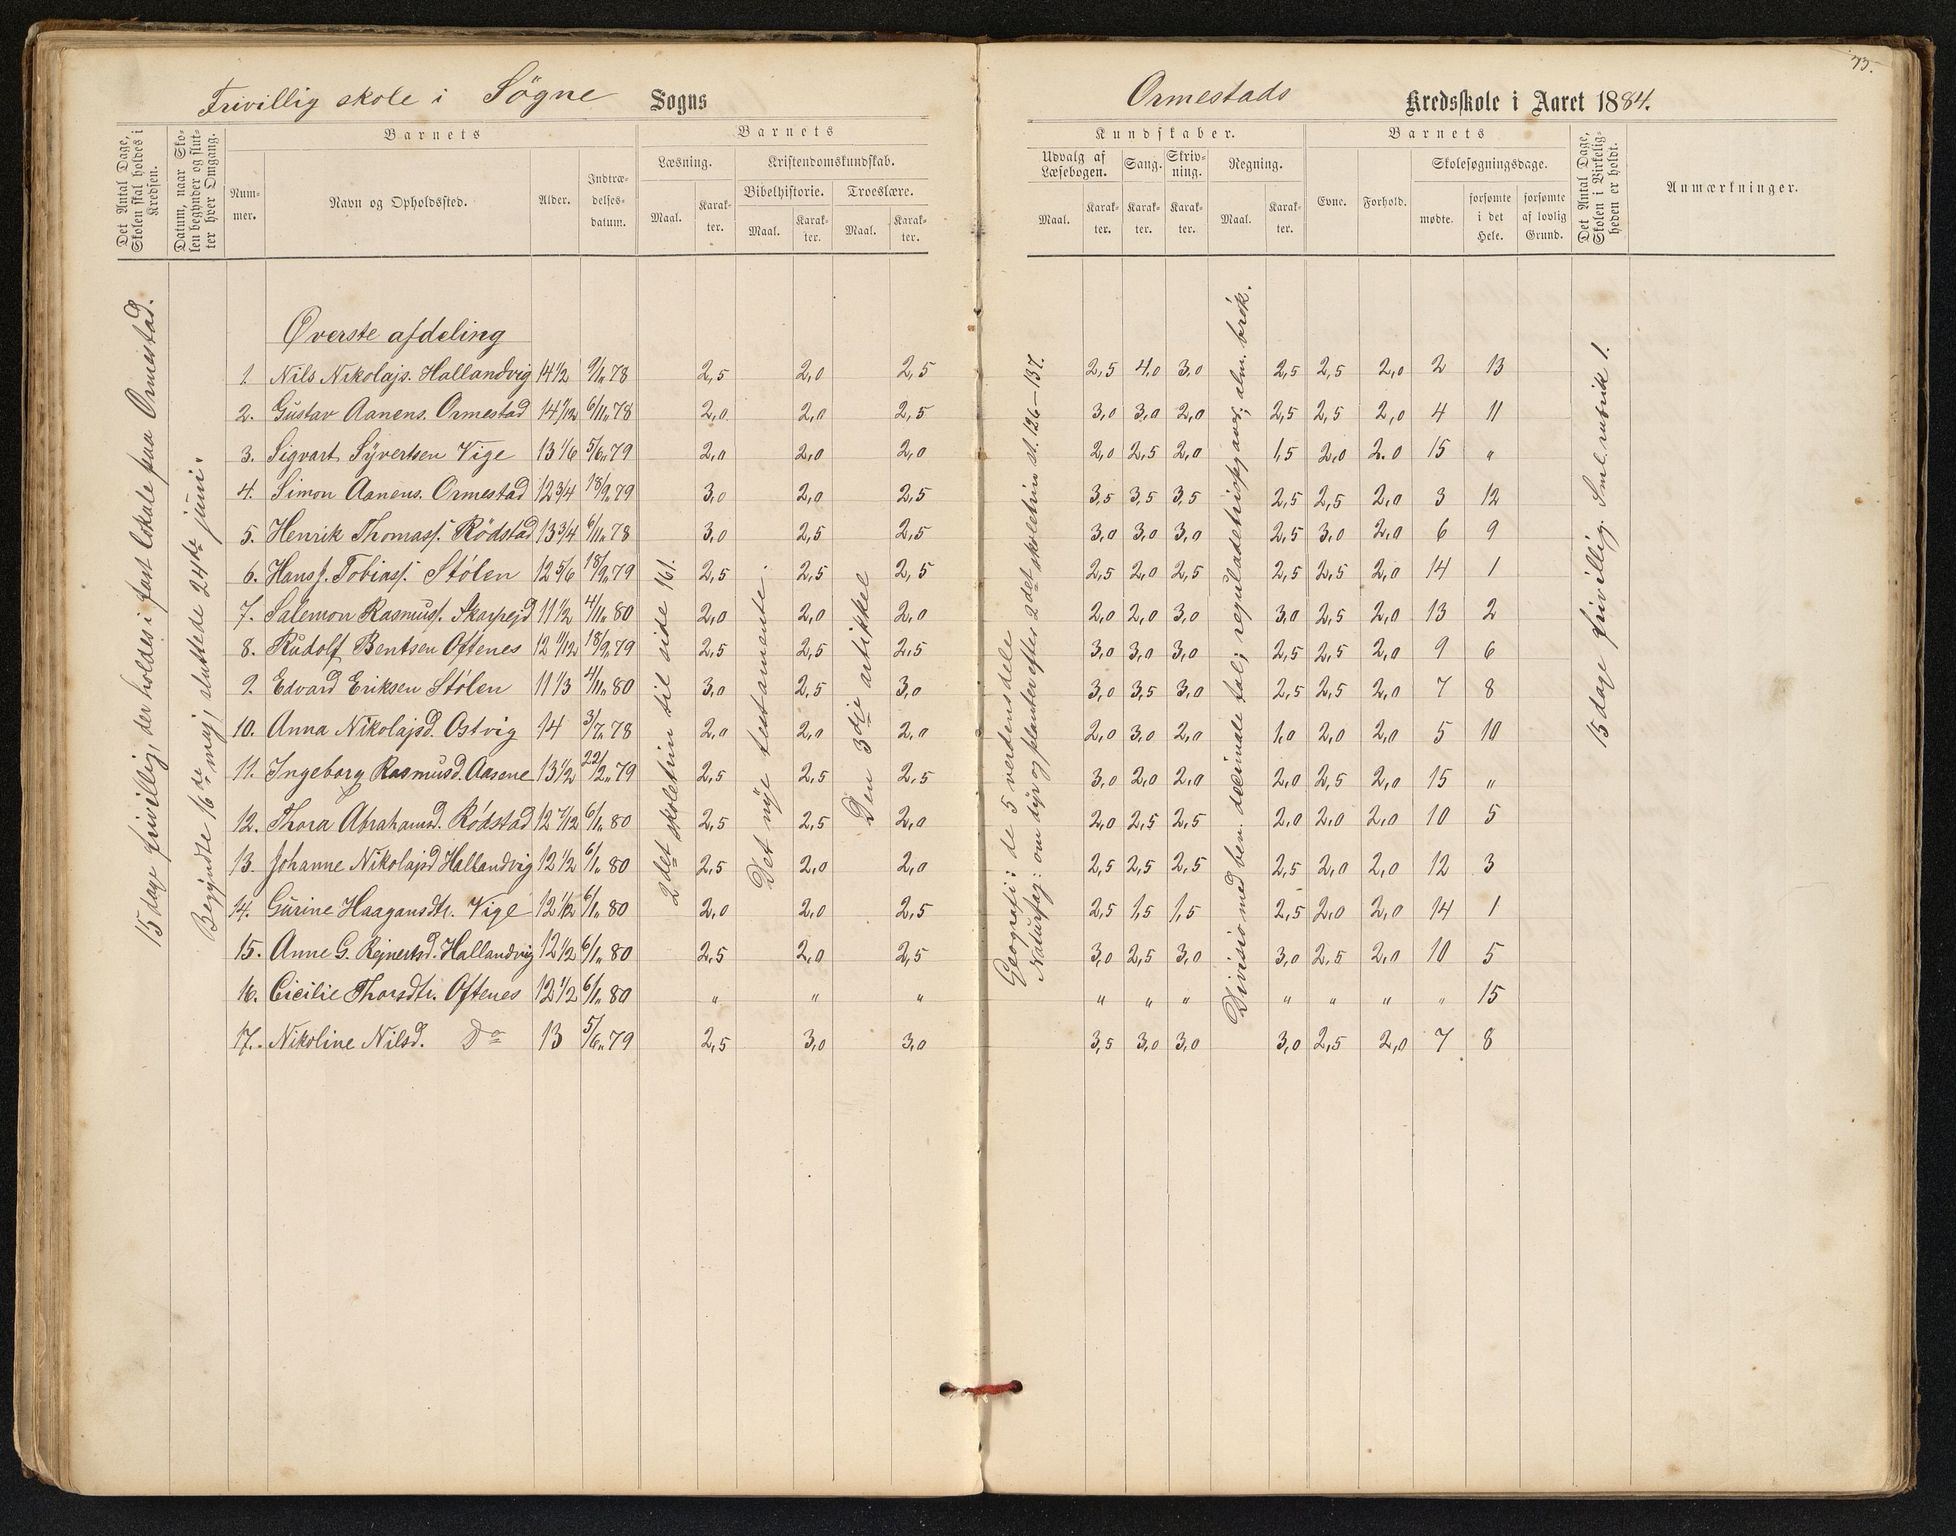 75.
Frivillig skole i Søgne Sogns
Ormestads Kredsskole i Aaret 1884.
Det Antal Dage, Skolen skal holdes i Kredsen.
Datum, naar Skolen begynder og slutter hver Omgang.
Barnets
Nummer.
Navn og Opholdssted.
Alder.
Indtrædelsesdatum.
Barnets
Læsning.
Maal.
Karakter.
Kristendomskundskab.
Bibelhistorie.
Maal.
Karakter.
Troeslære.
Maal.
Karakter.
Kundskaber.
Udvalg af Læsebogen.
Maal.
Karakter.
Sang.
Karakter.
Skrivning.
Karakter.
Regning.
Maal.
Karakter.
Barnets
Evne.
Forhold.
Skolesøgningsdage.
mødte.
forsømte i det Hele.
forsømte af lovlig Grund.
Det Antal Dage, Skolen i Virkeligheden er holdt.
Anmærkninger.
15 dage frivillig, der holdes i fast lokale paa Ormestad.
Begyndte 16de maj, sluttede 24de juni.
2det skoletrin til side 161.
Det nye testamente.
Den 3die artikkel
Geografi: de 5 verdensdele
Naturfag: om dyr og planter efter 2det skoletrin st. 126—137.
Division med ben. decimale tal; reguladetriopgaver; alm. brøk.
15 dage frivillig. Sml. rubrik 1.
Øverste afdeling
1. Nils Nikolajs. Hallandvig 14 1/2 9/1 78 2,5 2,0 2,5 2,5 4,0 3,0 2,5 2,5 2,0 2 13
2. Gustav Aanens. Ormestad 14 1/12 6/11 78 2,0 2,0 2,5 3,0 3,0 2,0 2,5 2,5 2,0 4 11
3. Sigvart Syvertsen Vige 13 1/6 5/6 79 2,0 2,0 2,0 2,0 2,5 2,0 1,5 2,0 2.0 15 "
4. Simon Aanens. Ormestad 12 3/4 18/9 79 3,0 2,0 2,5 3,5 3,5 3,5 2,5 2,5 2,0 3 12
5. Henrik Thomass. Rødstad 13 3/4 6/11 78 3,0 2,5 2,5 3,0 3,0 3,0 2,5 3,0 2,0 6 9
6. Hans J. Tobiass. Stølen 12 5/6 18/9 79 2,5 2,5 2,5 2,5 2,0 2,5 2,5 2,5 2,0 14 1
7. Salemon Rasmuss. Skarpejd 11 1/2 4/11 80 2,0 2,0 2,0 2,0 2,0 3,0 3,0 2,5 2,0 13 2
8. Rudolf Bentsen Oftenes 12 11/12 18/9 79 2,5 2,5 2,5 3,0 3,0 3,0 2,5 2,5 2,0 9 6
9. Edvard Eriksen Stølen 11 1/3 4/11 80 3,0 2,5 3,0 3,0 3,5 3,0 2,5 2,5 2,0 7 8
10. Anna Nikolajsd. Ostvig 14 3/7 78 2,0 2,0 2,0 2,0 3,0 2,0 1,0 2,0 2,0 5 10
11. Ingeborg Rasmusd. Aasene 13 1/2 22/2 79 2,5 2,5 2,5 3,0 2,0 2,0 2,0 2,5 2,0 15 "
12. Thora Abrahamsd. Rødstad 12 7/12 6/1 80 2,5 2,5 2,0 2,0 2,5 2,5 2,0 2,0 2,0 10 5
13. Johanne Nikolajsd Hallandvig 12 1/2 6/1 80 2,5 2,0 2,0 2,5 2,5 2,5 2,5 2,0 2,0 12 3
14. Gurine Haagansdtr. Vige 12 1/12 6/1 80 2,0 2,0 2,5 2,5 1,5 1,5 2,5 2,0 2,0 14 1
15. Anne G. Rejnertsd. Hallandvig 12 1/2 6/1 80 2,5 2,0 2,5 3,0 2,5 3,0 3,0 2,5 2,0 10 5
16. Cicilie Thorsdtr. Oftenes 12 1/2 6/1 80 " " " " " " " " " " 15
17. Nikoline Nilsd. Do 13 5/6 79 2,5 3,0 3,0 3,5 3,0 3,0 3,0 2,5 2,0 7 8